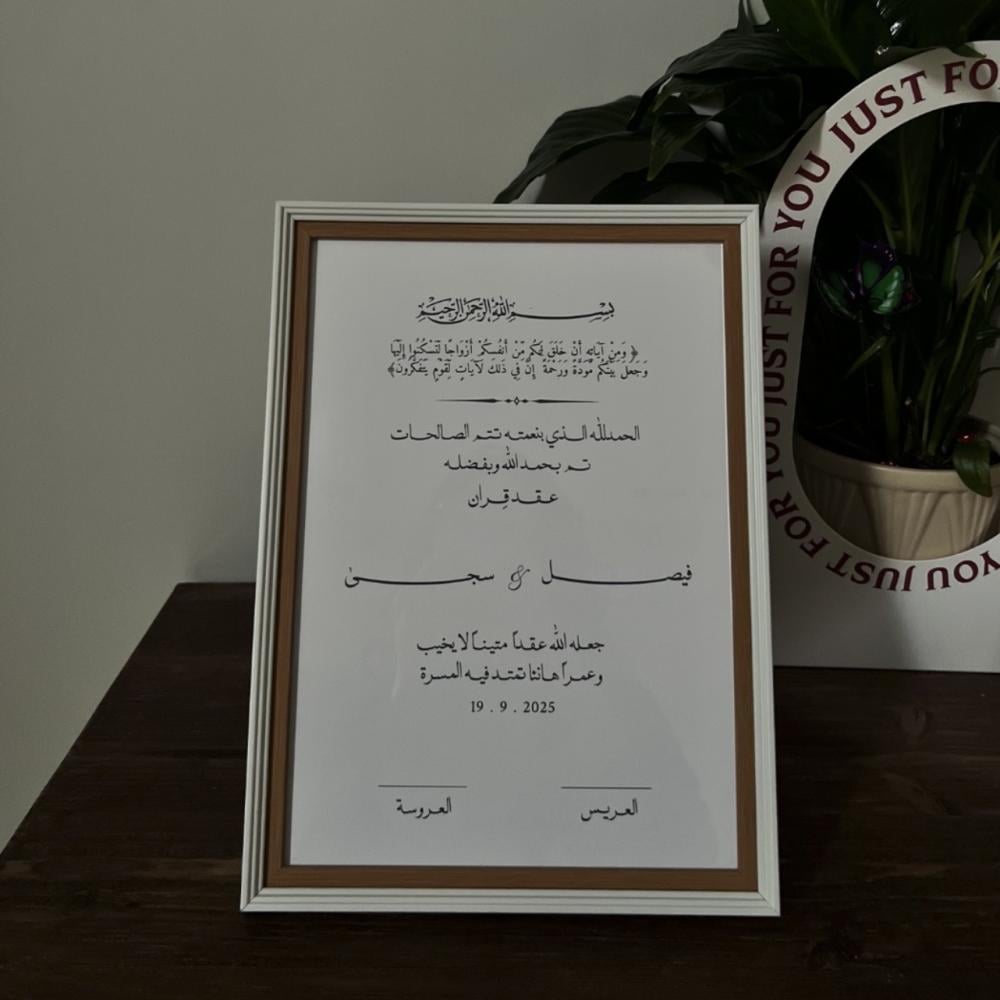 بسم الله الرحمن الرحيم
﴿ وَمِنْ آيَاتِهِ أَنْ خَلَقَ لَكُم مِّنْ أَنفُسِكُمْ أَزْوَاجًا لِّتَسْكُنُوا إِلَيْهَا
وَجَعَلَ بَيْنَكُم مَّوَدَّةً وَرَحْمَةً إِنَّ فِي ذَٰلِكَ لَآيَاتٍ لِّقَوْمٍ يَتَفَكَّرُونَ﴾
الحمدلله الذي بنعمته تتم الصالحات
تم بحمد الله وبفضله
عقد قِران
فيصل & سجىٰ
جعله الله عقداً متيناً لا يخيب
وعمراً هانئا تمتد فيه المسرة
19 . 9 . 2025
العريس
العروسة
JUST FOR YOU JUST FOR YOU JUST FOR YOU JUST FO